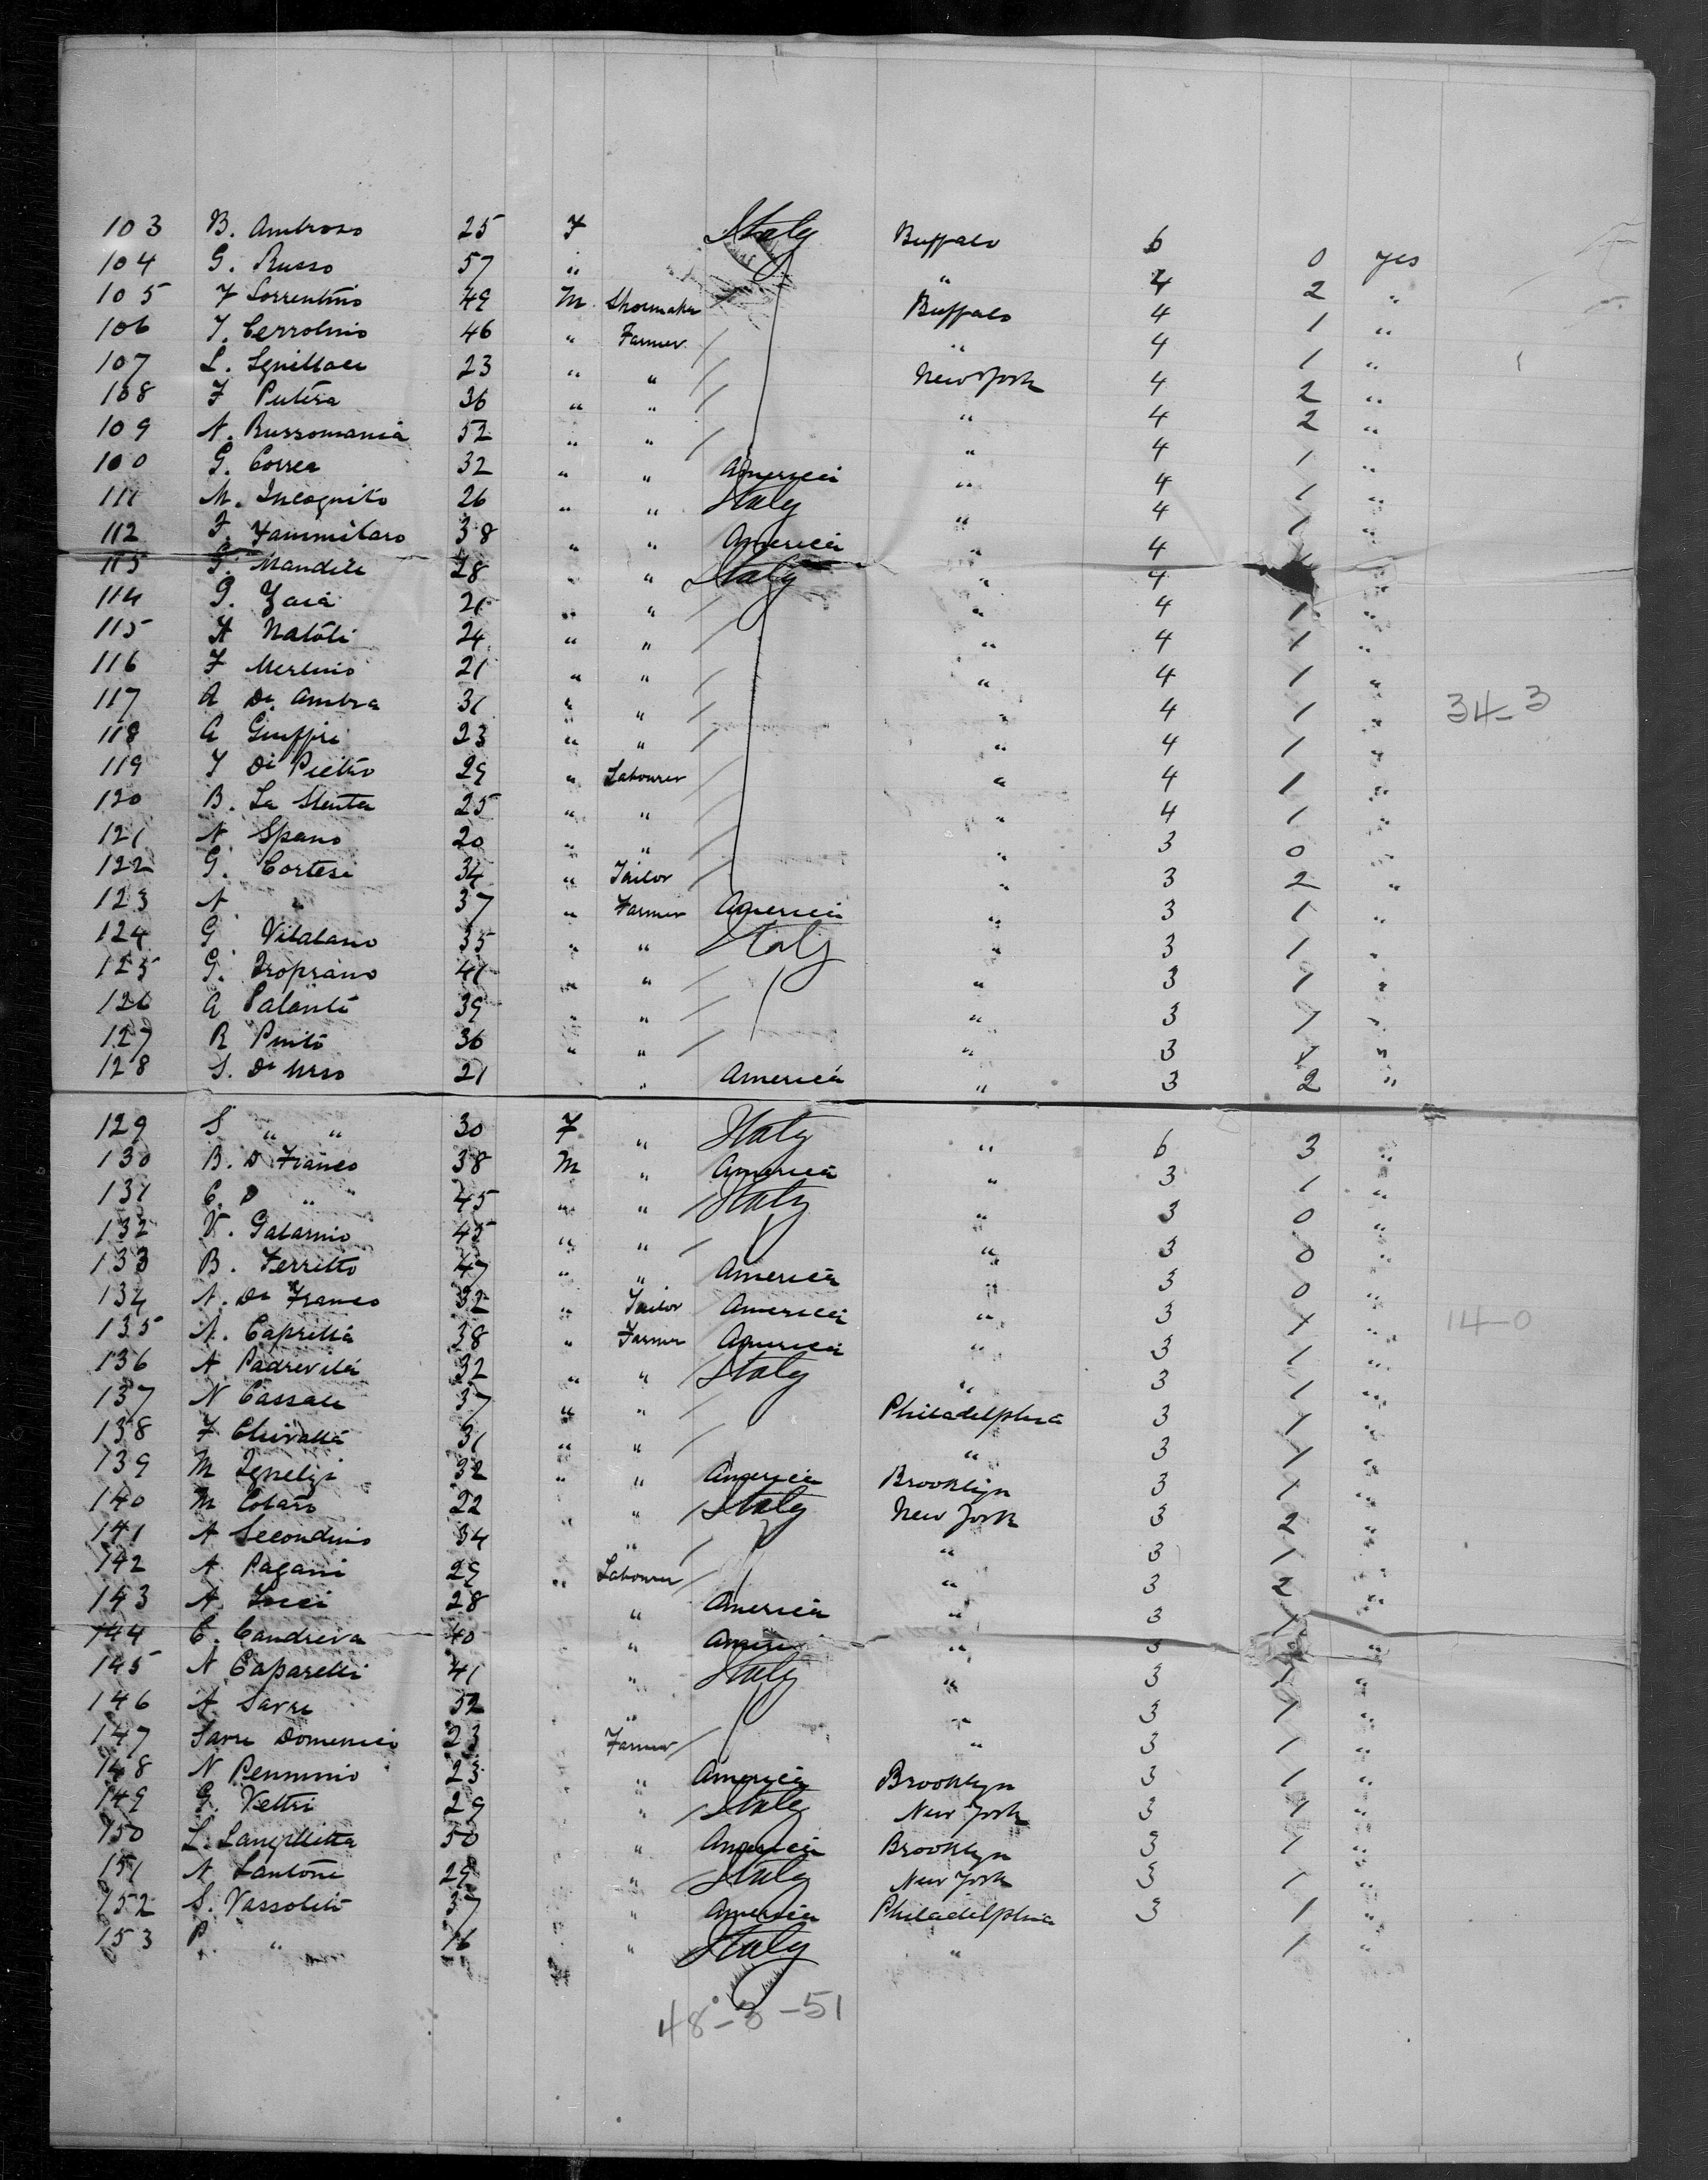 103 B. Ambroso 25 F Italy Buffalo 6 0 yes
104 G. Russo 57 " " 4 2 "
105 F Sorrentino 49 M Shoemaker / Buffalo 4 1 "
106 F. Cerrolino 46 " Farmer / " 4 1 "
107 L. Squillace 23 " " / New York 4 2 "
108 F Putera 36 " " / " 4 2 "
109 N. Russomania 52 " " / " 4 1 "
100 G. Correa 32 " " America " 4 1 "
111 M. Incognito 26 " " Italy " 4 1 "
112 F. Fammitaro 38 " " America " 4
113 G. Mandile 28 " " Italy " 4 "
114 G. Zaia 21 " " / " 4 1 "
115 A Natoli 24 " " / " 4 1 "
116 F Merlino 21 " " / " 4 1 "
117 A De Ambra 31 " " / " 4 1 " 34-3
118 A Giuffri 23 " " / " 4 1 "
119 F Di Pietro 29 " Labourer / " 4 1 "
120 B. La Menta 25 " " / " 4 1 "
121 N. Spano 20 " " / " 3 0 "
122 G. Cortese 34 " Tailor / " 3 2 "
123 N " 37 " Farmer America " 3 1 "
124 G Vilalano 35 " " Italy " 3 1 "
125 G. Troprano 41 " " / " 3 1 "
126 A Salanti 39 " " / " 3 1 "
127 R Pinto 36 " " / " 3 1 "
128 S. De Urso 21 " America " 3 2 "
129 S " " 30 F " Italy " 6 3 "
130 B. D Franco 38 M " America " 3 1 "
131 C. D " 45 " " / Italy " 3 0 "
132 V. Galarnio 45 " " / " 3 0 "
133 B. Ferritto 47 " " America " 3 0 "
134 N. De Franco 32 " Tailor America " 3 1 "
135 N. Caprella 38 " Farmer America " 3 1 " 14-0
136 A Padrevita 32 " " Italy " 3 1 "
137 N Cassale 37 " " / Philadelphia 3 1 "
138 F Chivalla 31 " " / " 3 1 "
139 M Ignelzi 32 " " America Brooklyn 3 1 "
140 M Colaro 22 " " / Italy New York 3 2 "
141 A Secondino 34 " " / " 3 1 "
142 A Pagani 29 " Labourer / " 3 2 "
143 A 28 " America " 3 1
144 C. Candreva 40 " Ameri " 3 "
145 N Caparelli 41 " Italy " 3 1 "
146 A Savre 52 " " 3 1 "
147 Savre Domenico 23 Farmer / " 3 1 "
148 N Pennino 23 " America Brooklyn 3 1 "
149 G. Veltri 29 " / Italy New York 3 1 "
150 L. Langilletta 50 " America Brooklyn 3 1 "
151 N Santone 29 " Italy New York 3 1 "
152 S. Vassoleti 37 " America Philadelphia 3 1 "
153 P. " 16 " Italy " 1 "
48-3-51